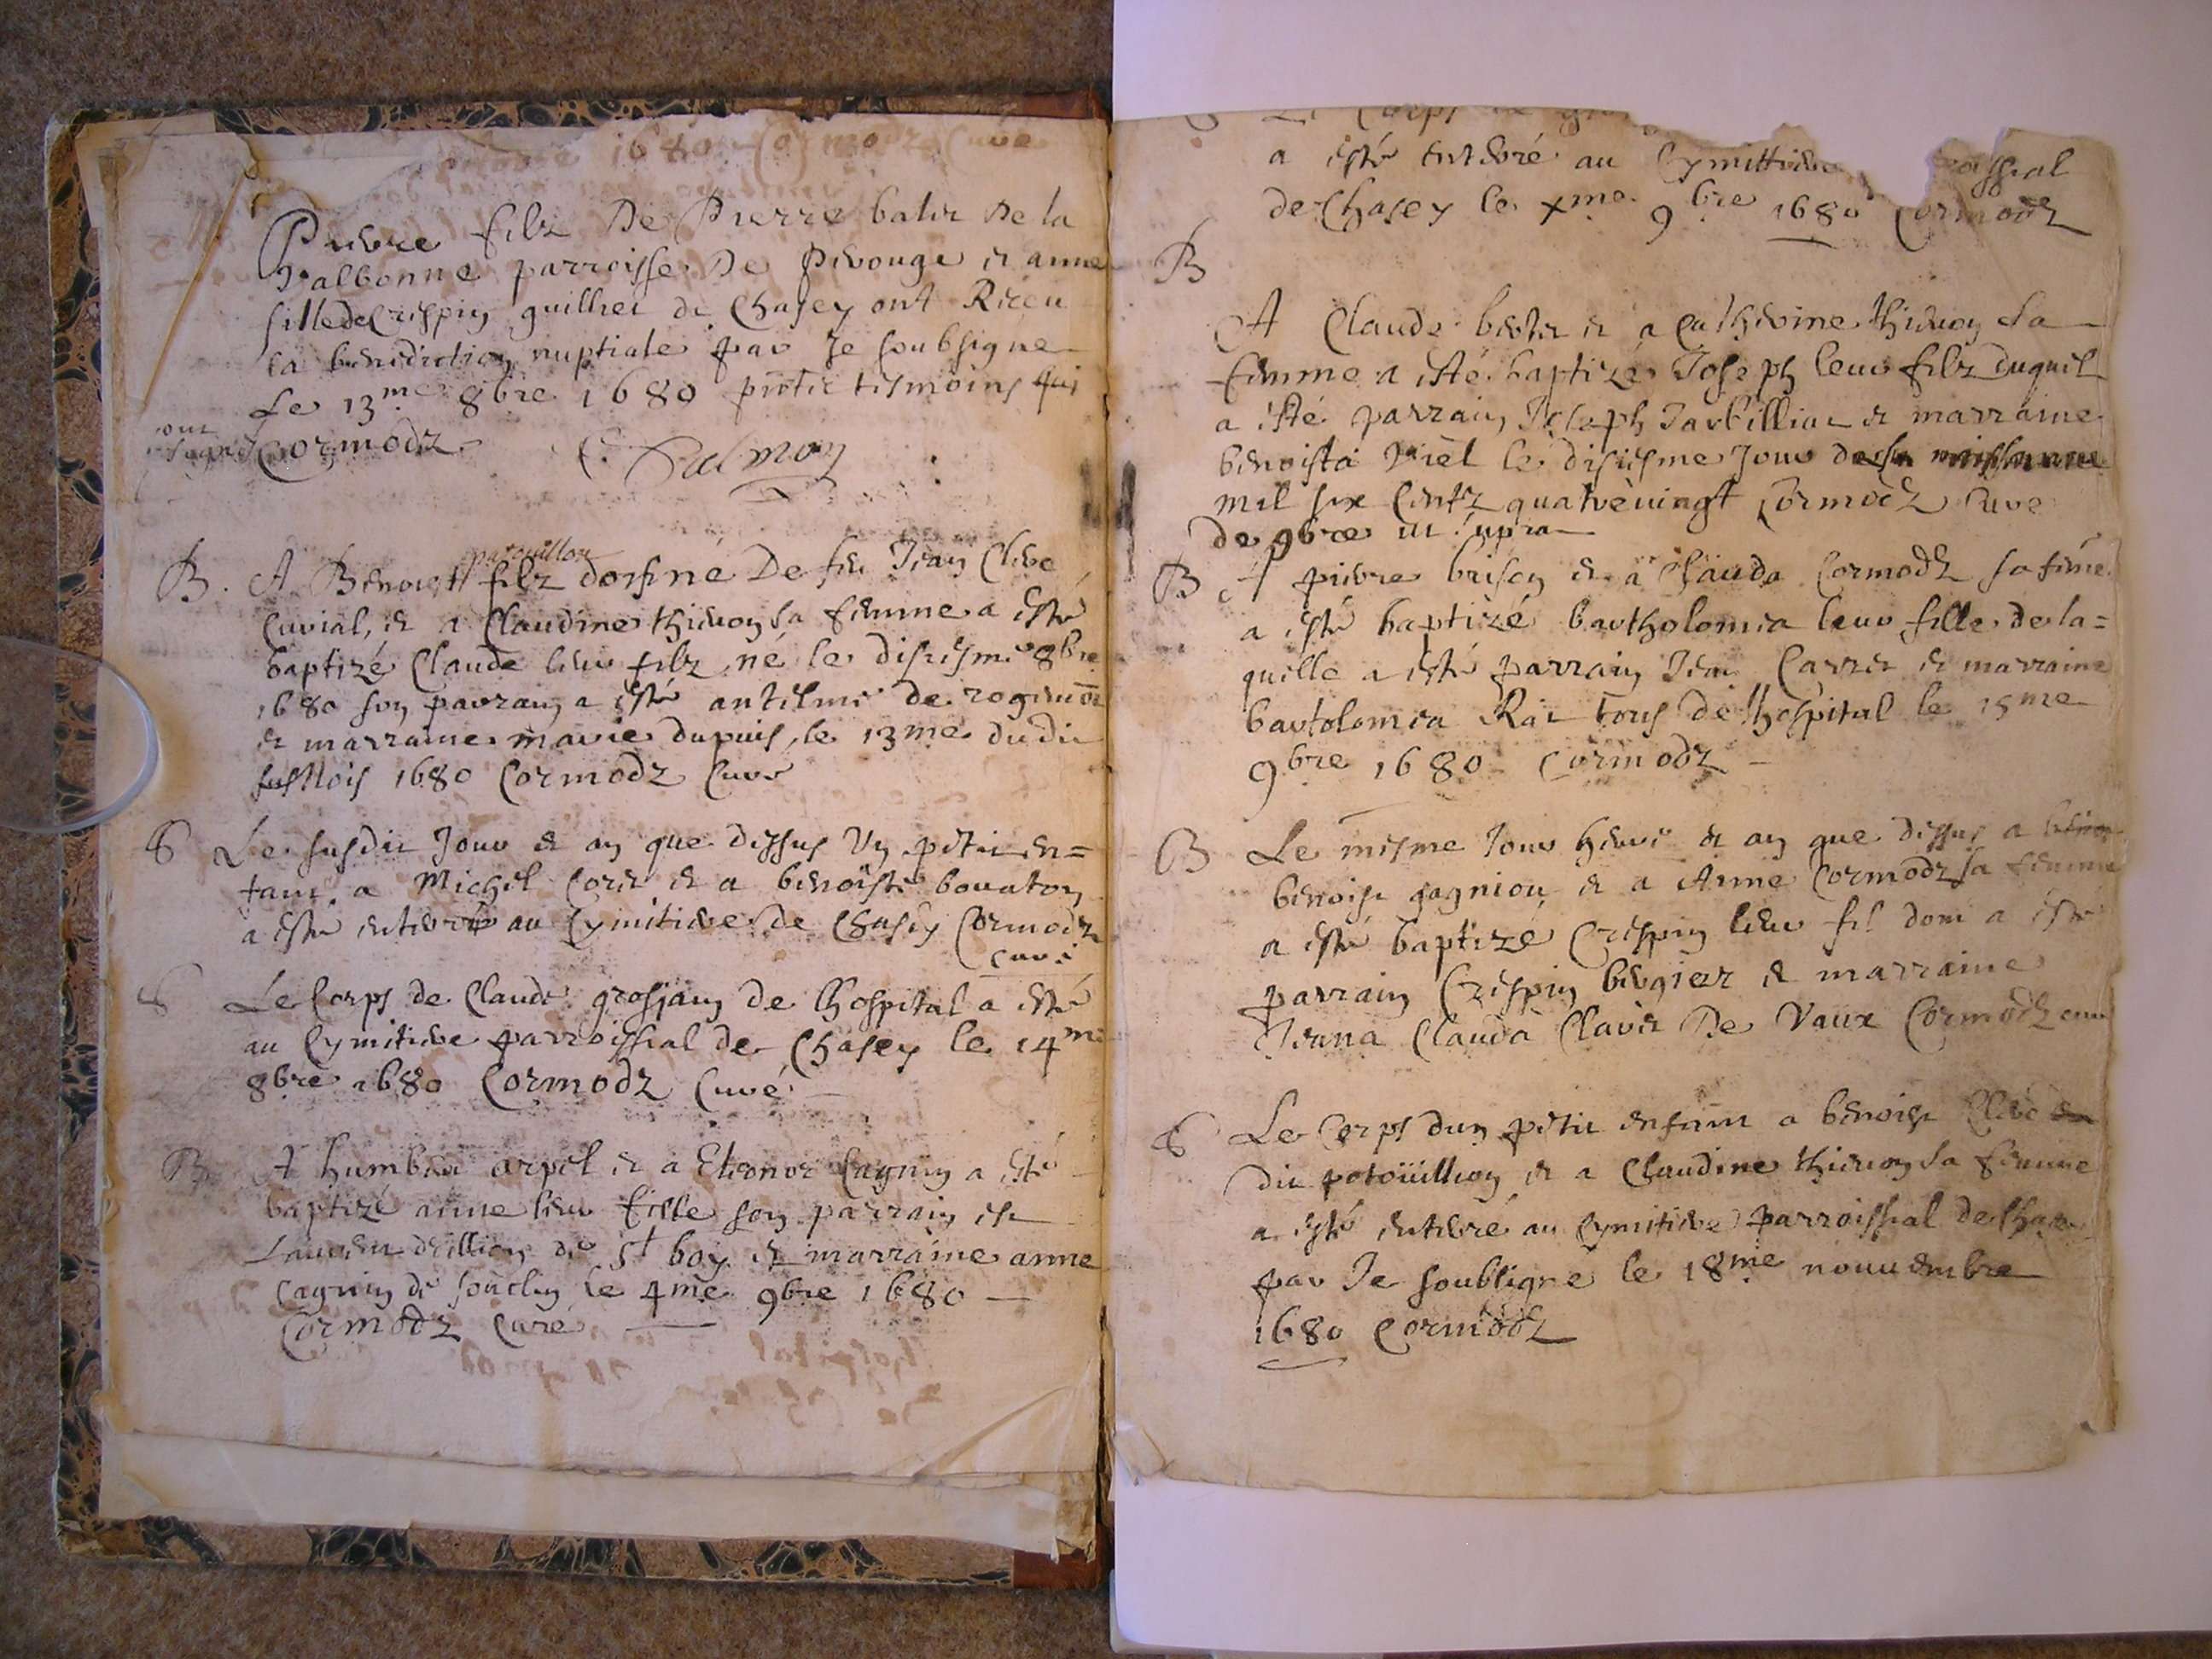 1680 Cormodz Curé
Pierre filz De Pierre balet De la
Valbonne parroisse De Perouge et anne
fille de Crespin guillret de Chasey ont Receu
la benediction nuptiale par Je soubsigne
Le 13me 8bre 1680 tesmoins qui
ont
signé Cormodz C. Palmon
B. A Benoist patouillon filz de feu Jean Clere
Curial, et a Claudine thienon sa femme a esté
baptizé Claude leur filz né le disiesme 8bre
1680 son parrain a esté antelme de
et marraine marie dupuis le 13me dudit
susMois 1680 Cormodz Curé
S Le susdit Jour et an que dessus Un petit en=
fant a Michel Coret et a benoiste bouaton
a esté enterré au Cymitiere de Chasey Cormodz
Curé
S Le Corps de Claude grosjean de lhospital a esté
au Cymitiere parroissial de Chasey le 14me
8bre 1680 Cormodz Curé
B A humbert arpel et a Eleonor Cagnin a esté
baptizé anne leur fille son parrain est
Laurent deillion de St boy et marraine anne
Cagnin de souclin le 4me 9bre 1680
Cormodz Curé
Le Corps
a esté enterré au Cymittiere
de Chasey le xme 9bre 1680 Cormodz
B
A Claude bertet et a Catherine thienon sa
femme a esté baptizé Joseph leur filz duquel
a esté parrain Joseph Tarbilliat et marraine
benoista Viel le disiesme Jour
mil six Centz quatreuingt Cormodz Cure
de 9bre ut supra
B A pierre brison et a Clauda Cormodz sa feme
a esté baptizé bartholomea leur fille de la=
quelle a esté parrain Jean Carret et marraine
bartolomea Rat tous de lhospital le 15me
9bre 1680 Cormodz
B Le mesme Jour heure et an que dessus a
benoist gagniou et a Anne Cormodz sa femme
a esté baptizé Crespin leur fil dont a esté
parrain Crespin bergier et marraine
Jeana Clauda Claret De Vaux Cormodz cure
S Le Corps dun petit enfant a benoist Clere
dit potoüillion et a Claudine thienon sa femme
a esté enterré au Cymitiere parroissial de Chasey
par Je soubsigne le 18me nouuembre
1680 Cormodz